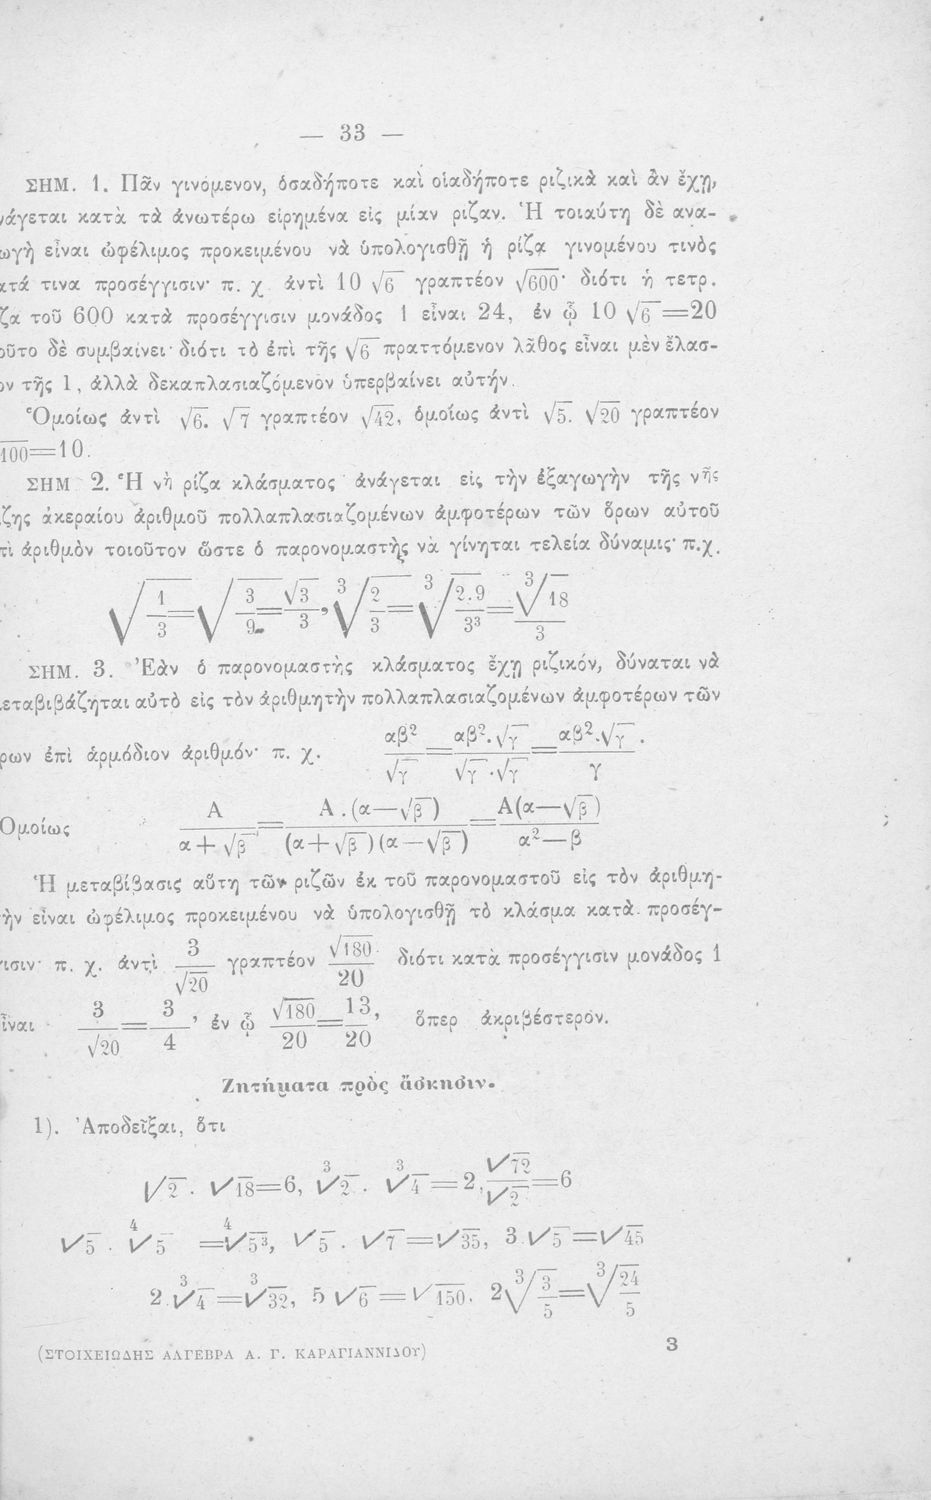 — 33 —
ΣΗΜ. 1. Πᾶν γινόμενον, ὁσαδήποτε καὶ οἱαδήποτε ριζικὰ καὶ ἂν ἔχῃ,
νάγεται κατὰ τὰ ἀνωτέρω εἰρημένα εἰς μίαν ριζαν. Ἡ τοιαύτη δὲ ανα-
ωγὴ εἶναι ὠφέλιμος προκειμένου νὰ ὑπολογισθῇ ἡ ρίζα γινομένου τινὸς
ατά τινα προσέγγισιν· π. χ ἀντὶ 10 √6 γραπτέον √600· διότι ἡ τετρ.
ζα τοῦ 600 κατὰ προσέγγισιν μονάδος 1 εἶναι 24, ἐν ᾧ 10 √6=20
οῦτο δὲ συμβαίνει· διότι τὸ ἐπὶ τῆς √6 πραττόμενον λᾶθος εἶναι μὲν ἔλασ-
ον τῆς 1, ἀλλὰ δεκαπλασιαζόμενον ὑπερβαίνει αὐτήν.
Ὁμοίως ἀντὶ √6. √7 γραπτέον √42, ὁμοίως ἀντὶ √5. √20 γραπτέον
100=10.
ΣΗΜ 2. Ἡ νὴ ρίζα κλάσματος ἀνάγεται εἰς τὴν ἐξαγωγὴν τῆς νῆς
ζης ἀκεραίου ἀριθμοῦ πολλαπλασιαζομένων ἀμφοτέρων τῶν ὅρων αὐτοῦ
πὶ ἀριθμὸν τοιοῦτον ὥστε ὁ παρονομαστὴς νὰ γίνηται τελεία δύναμις· π.χ.
√(1/3)=√(3/9)=√3/3, ∛(2/3)=∛(2.9/3³)=∛18/3
ΣΗΜ. 3. Ἐὰν ὁ παρονομαστὴς κλάσματος ἔχῃ ριζικόν, δύναται νὰ
εταβιβάζηται αὐτὸ εἰς τὸν ἀριθμητὴν πολλαπλασιαζομένων ἀμφοτέρων τῶν
ρων ἐπὶ ἁρμόδιον ἀριθμόν· π. χ. αβ²/√γ=αβ².√γ/√γ.√γ=αβ².√γ/γ.
Ομοίως Α/(α+√β)=Α.(α—√β)/(α+√β)(α—√β)=Α(α—√β)/α²—β
Ἡ μεταβίβασις αὕτη τῶν ριζῶν ἐκ τοῦ παρονομαστοῦ εἰς τὸν ἀριθμη-
ὴν εἶναι ὠφέλιμος προκειμένου νὰ ὑπολογισθῇ τὸ κλάσμα κατὰ προσέγ-
ισιν· π. χ. ἀντὶ 3/√20 γραπτέον √180/20· διότι κατὰ προσέγγισιν μονάδος 1
ἶναι 3/√20=3/4, ἐν ᾧ √180/20=13/20, ὅπερ ἀκριβέστερον.
Ζητήματα πρὸς ἄσκησιν.
1). Ἀποδεῖξαι, ὅτι
√2. √18=6, ∛2. ∛4=2, √72/√2=6
√5. ∜5 =∜5³, √5. √7=√35, 3 √5=√45
2 ∛4=∛32, 5 √6=√150. 2∛(3/5)=∛(24/5)
(ΣΤΟΙΧΕΙΩΔΗΣ ΑΛΓΕΒΡΑ Α. Γ. ΚΑΡΑΓΙΑΝΝΙΔΟΥ) 3